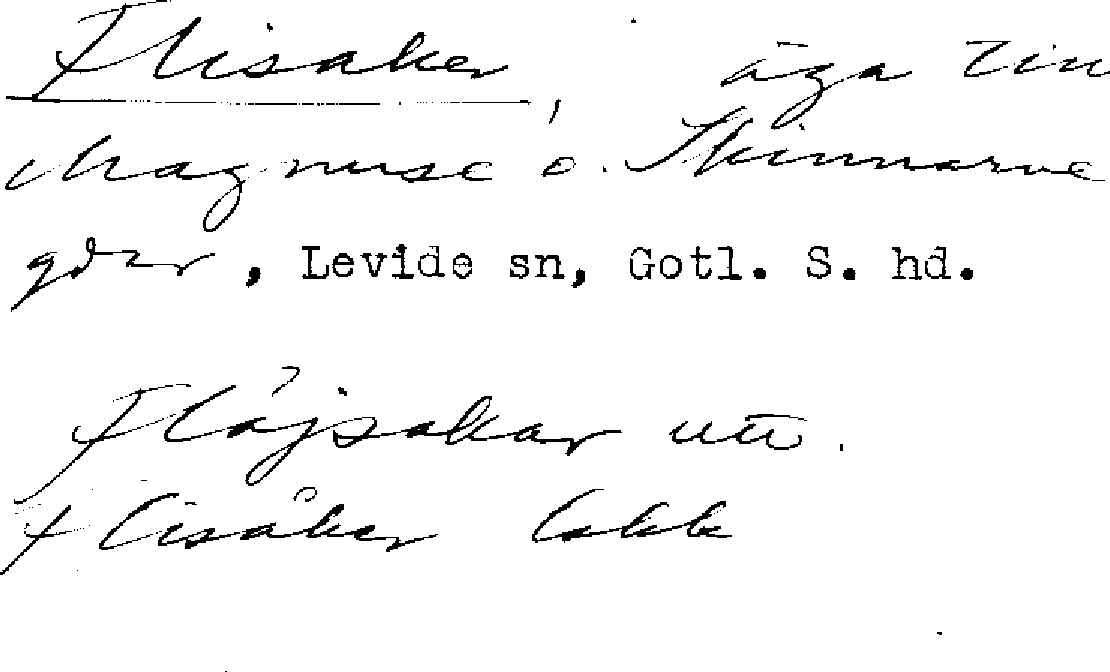 Flisaker, äga till
Magnuse o. Skinnarve
gdar, Levide sn, Gotl. S. hd.
Flåjsakar utt.
Flisåker